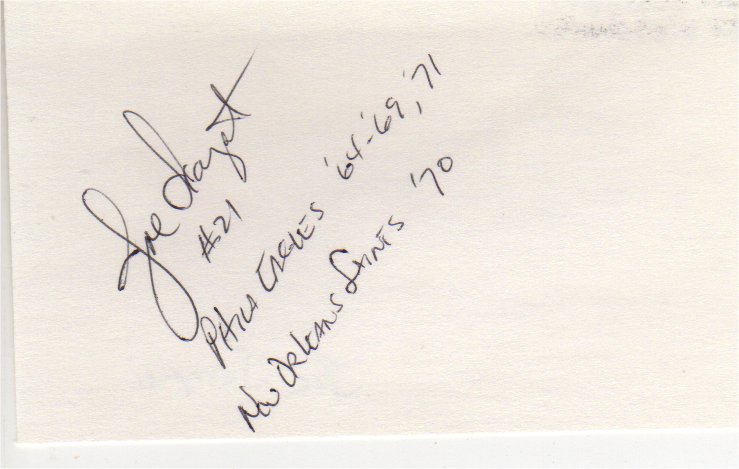 Joe Scarpati
#21
PHILA EAGLES '64-'69, '71
NEW ORLEANS SAINTS '70